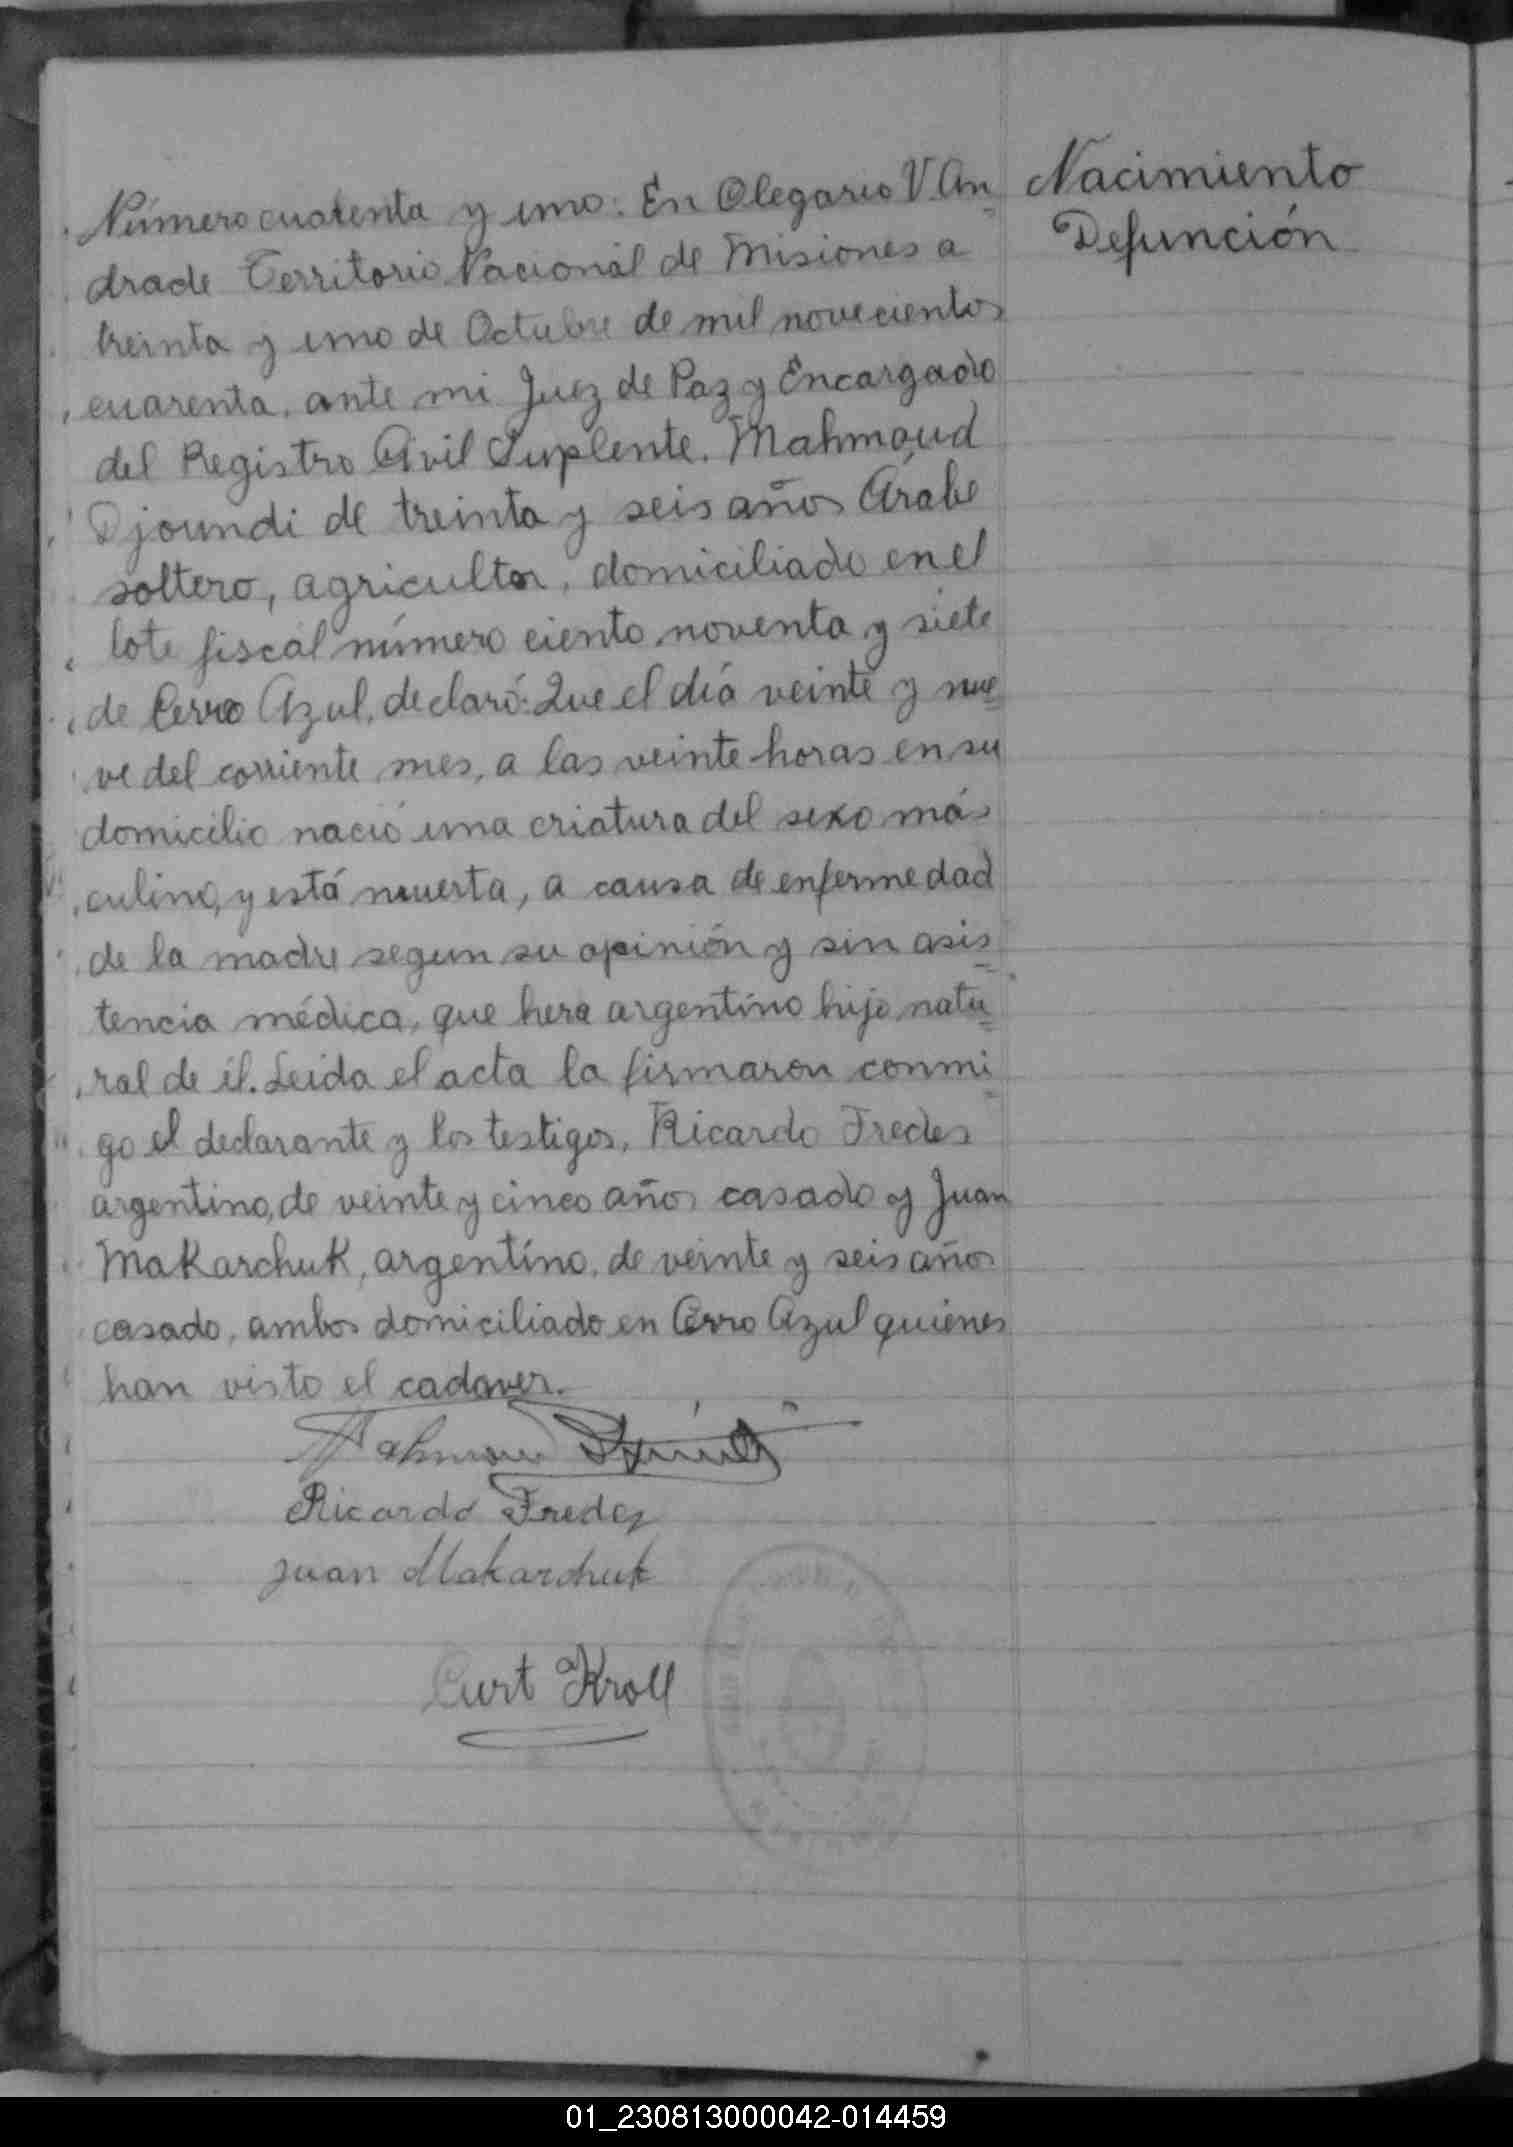 Número cuarenta y uno: En Olegario V. An=
drade Territorio Nacional de Misiones a
treinta y uno de Octubre de mil novecientos
cuarenta, ante mi Juez de Paz y Encargado
del Registro Civil Suplente. Mahmoud
Djoundi de treinta y seis años Árabe
soltero, agricultor, domiciliado en el
lote fiscal número ciento noventa y siete
de Cerro Azul, declaró: Que el día veinte y nue=
ve del corriente mes, a las veinte horas en su
domicilio nació una criatura del sexo más
culino, y está muerta, a causa de enfermedad
de la madre segun su opinión y sin asis=
tencia médica, que hera argentino hijo natu=
ral de él. Leida el acta la firmaron conmi=
go el declarante y los testigos, Ricardo Fredes
argentino, de veinte y cinco años casado y Juan
Makarchuk, argentino, de veinte y seis años
casado, ambos domiciliado en Cerro Azul quienes
han visto el cadaver.
Ricardo Fredez
Juan Makarchuk
Curt Kroll
Nacimiento
Defunción
01_230813000042-014459